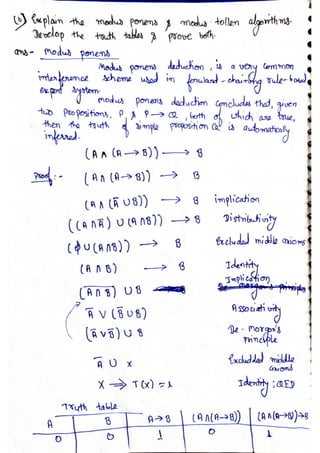 (b) Explain the modus ponens & modus tollen algorithms.
Develop the truth tables & prove both.
ans- Modus ponens
Modus ponens deduction, is a very common
interference scheme used in forward-chaining rule-based
expert system.
modus ponens deduction concludes that, given
two propositions, P & P → Q, both of which are true,
then the truth of simple proposition Q is automatically
inferred.
(A ∧ (A → B)) → B
Proof :- (A ∩ (A → B)) → B
(A ∩ (Ā ∪ B)) → B implication
((A ∩ Ā) ∪ (A ∩ B)) → B Distributivity
(ϕ ∪ (A ∩ B)) → B Excluded middle axioms
(A ∩ B) → B Identity
Implication
(A ∩ B) ∪ B
Ā ∨ (B̄ ∪ B) Associativity
(Ā ∨ B̄) ∪ B De-morgan's
principle
Ā ∪ X Excluded middle
axioms
X ⇒ T(X) = 1 Identity; QED
Truth table
A B A → B (A ∩ (A → B)) (A ∩ (A → B)) → B
0 0 1 0 1